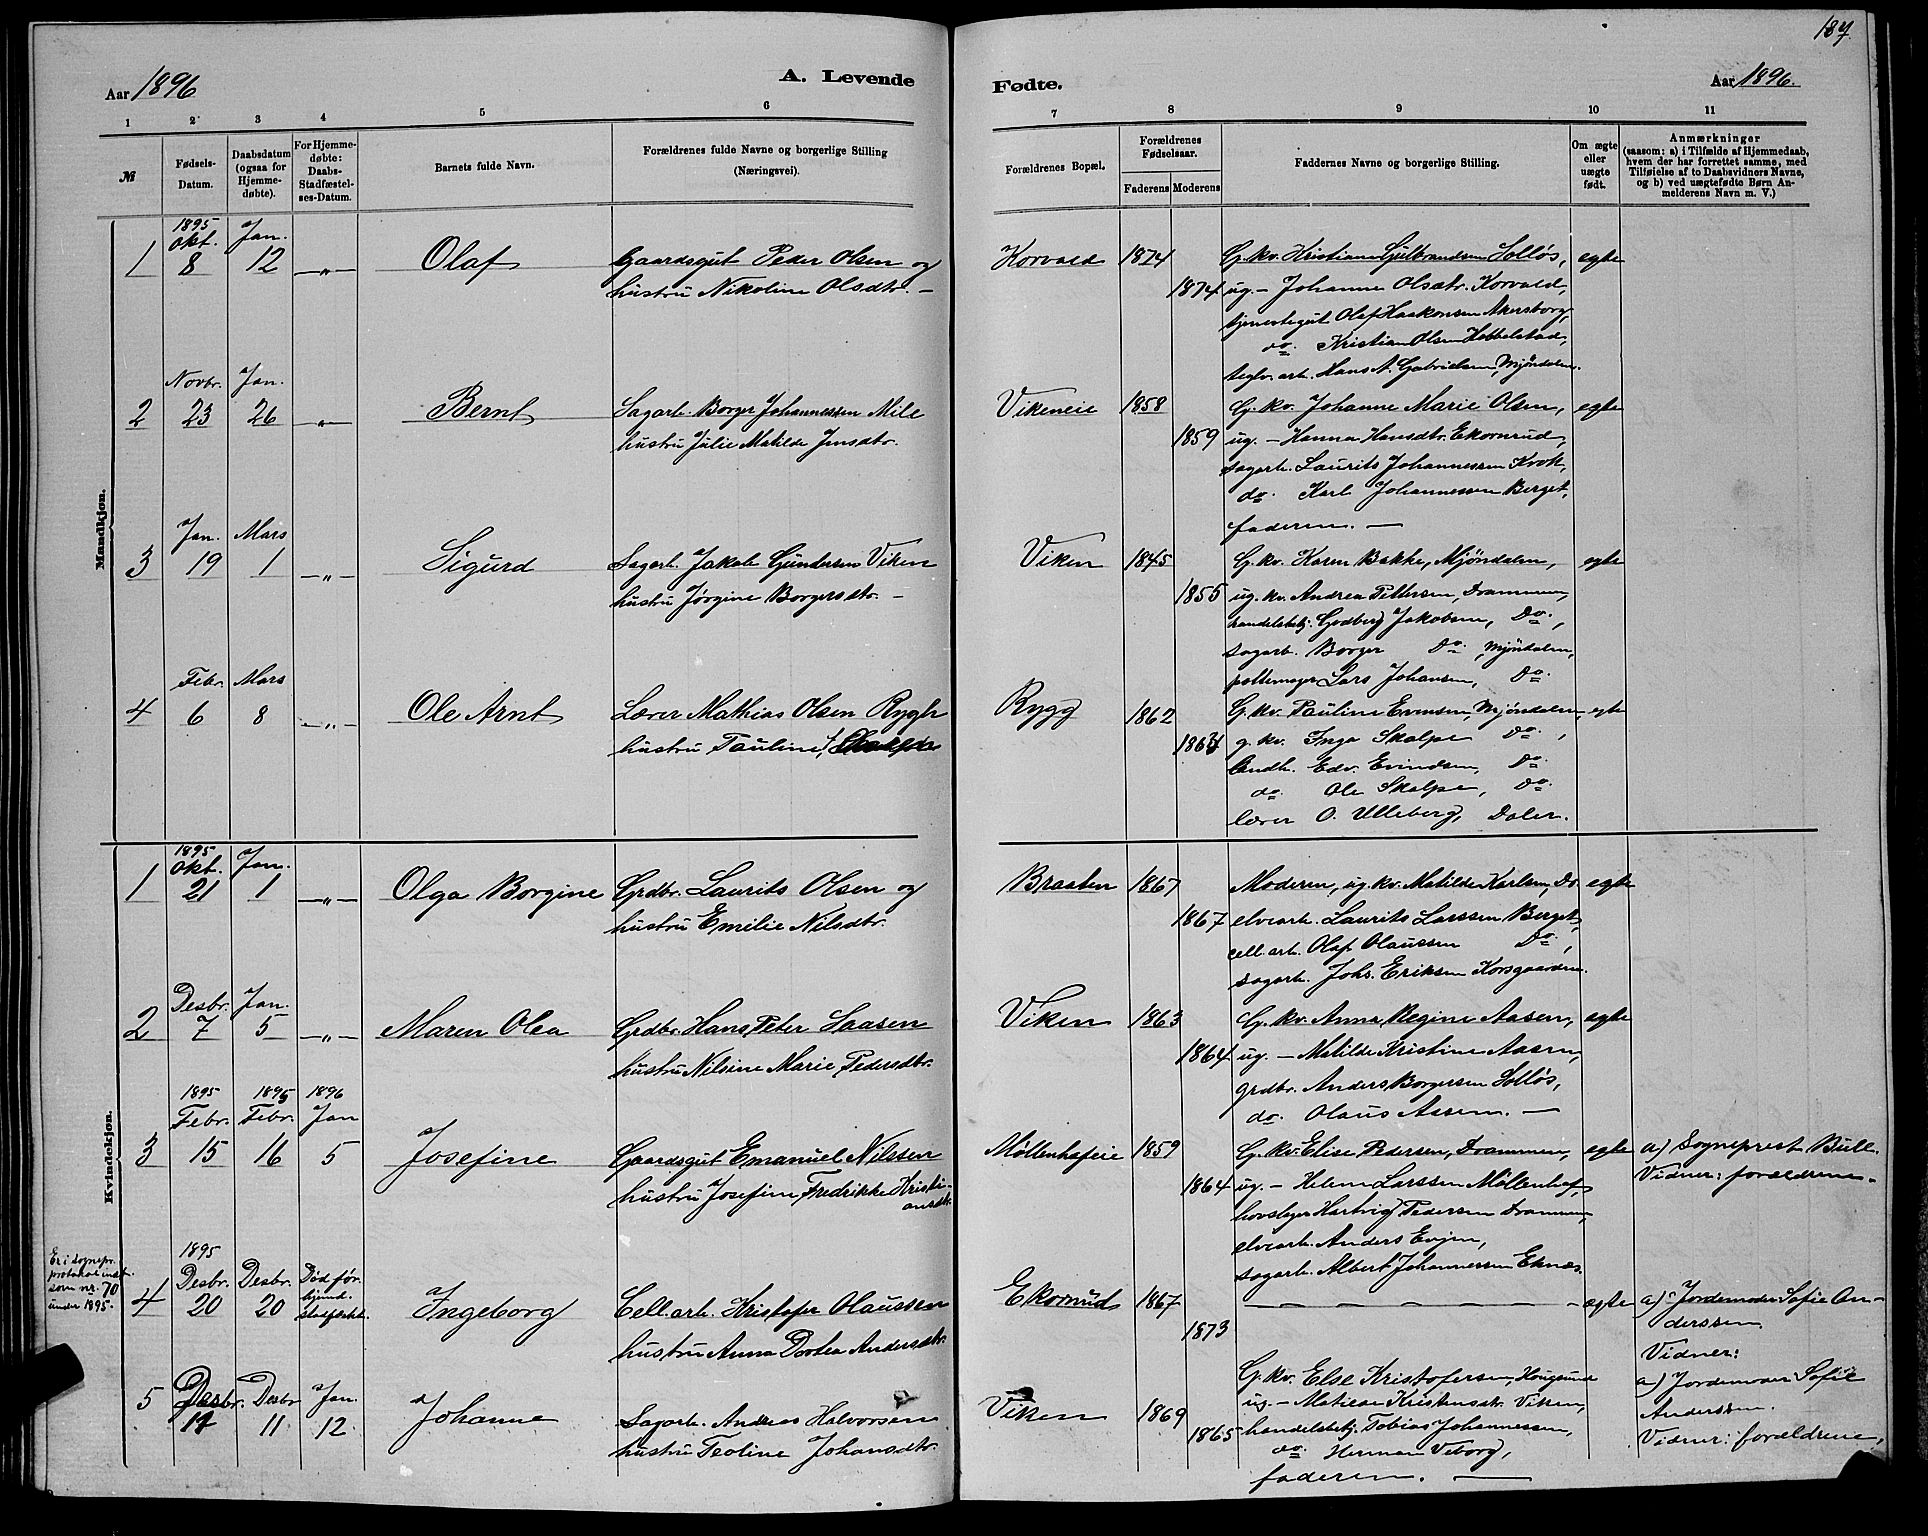 187.
Aar 1896
A. Levende
Fødte.
Aar 1896.
1 2 3 4 5 6 7 8 9 10 11
№
Fødsels-
Datum.
Daabsdatum
(ogsaa for
Hjemme-
døbte).
For Hjemme-
døbte:
Daabs-
Stadfæstel-
ses-Datum.
Barnets fulde Navn.
Forældrenes fulde Navne og borgerlige Stilling
(Næringsvei).
Forældrenes Bopæl.
Forældrenes
Fødselsaar.
Faderens Moderens
Faddernes Navne og borgerlige Stilling.
Om ægte
eller
uægte
født.
Anmærkninger
(saasom: a) i Tilfælde af Hjemmedaab,
hvem der har forrettet samme, med
Tilføielse af to Daabsvidners Navne,
og b) ved uægtefødte Børn An-
melderens Navn m. V.)
Mandkjøn.
1895
Okt. Jan.
1 8 12 —„— Olaf Gaardsgut Peder Olsen og
hustru Nikoline Olsdtr. —
Korvald 1874 G. kv. Kristiane Gulbrandsen Solløs, egte
1874 ug. — Johanne Olsdtr. Korvald,
tjenestegut Olaf Haakonsen Akersborg,
do. Kristian Olsen Hobbelstad,
teglv. arb. Hans A. Gabrielsen, Mjøndalen.
Novbr. Jan.
2 23 26 —„— Bernt Sagarb. Borger Johannessen Mile
hustru Julie Matilde Jensdtr.
Vikeneie 1858 G. kv. Johanne Marie Olsen, egte
1859 ug. — Hanna Hansdtr. Ekornrud,
sagarb. Laurits Johannessen Krok,
do. Karl Johannessen Berget,
faderen. —
Jan. Mars
3 19 1 —„— Sigurd Sagarb. Jakob Gundersen Viken
hustru Jørgine Borgersdtr. —
Viken 1845 G. kv. Karen Bakke, Mjøndalen, egte
1855 ug. kv. Andrea Pettersen, Drammen,
handelsbetj. Godberg Jakobsen, Do.,
sagarb. Borger Do., Mjøndalen,
pottemager Lars Johansen, Do.
Febr. Mars
4 6 8 —„— Ole Arnt Lærer Mathias Olsen Rygh
hustru Pauline f. Skalpe
Rygg 1862 G. kv. Pauline Evensen, Mjøndalen, egte
g. kv. Inga Skalpe Do.,
Landh. Edv. Evindsen, Do.
do. Ole Skalpe, Do.
lærer O. Ulleberg, Daler.
Kvindekjøn.
1895
Okt. Jan.
1 21 1 —„— Olga Borgine Grdbr. Laurits Olsen og
hustru Emilie Nilsdtr.
Braaten 1867 Moderen, ug. kv. Matilde Karlsen, Do. egte
1867 elvearb. Laurits Larssen Berget,
cell. arb. Olaf Olaussen Do.,
sagarb. Johs. Eriksen Korsgaarden.
Desbr. Jan.
2 7 5 —„— Maren Olea Grdbr. Hans Peter Laasen
hustru Nilsine Marie Pedersdtr.
Viken 1863 G. kv. Anna Regine Aasen, egte
1864 ug. — Matilde Kristine Aasen,
grdbr. Anders Borgersen Solløs,
do. Olaus Aasen. —
1895 1895 1896
Febr. Febr. Jan
3 15 16 5 Josefine Gaardsgut Emanuel Nilssen
hustru Josefine Fredrikke Kristi-
ansdtr.
Møllenhofeie 1859 G. kv. Elise Pedersen, Drammen, egte a) Sogneprest Bull.
1864 ug. — Helene Larssen Møllenhof, Vidner: forældrene.
hovslager Hartvig Pedersen Drammen,
elvearb. Anders Evjen,
sagarb. Albert Johannessen Eknes.
Er i sognepr.
protokol indf.
som nr. 70
under 1895.
1895
Desbr. Desbr. Død før
4 20 20 Ingeborg Cell. arb. Kristofer Olaussen
hustru Anna Dortea Andersdtr.
Ekornrud 1867 — — — egte a) Jordemoder Sofie An-
1873 derssen.
Vidner:
Desbr. Desbr Jan.
5 11 11 12 Johanne Sagarb. Andreas Halvorsen
hustru Teoline Johansdtr.
Viken 1869 G. kv. Else Kristofersen, Hougsund a) Jordemoder Sofie
1865 ug. — Matilde Kristensdtr. Viken, Anderssen.
handelsbetj. Tobias Johannessen, Vidner: forældrene,
do. Herman Viborg,
faderen. —